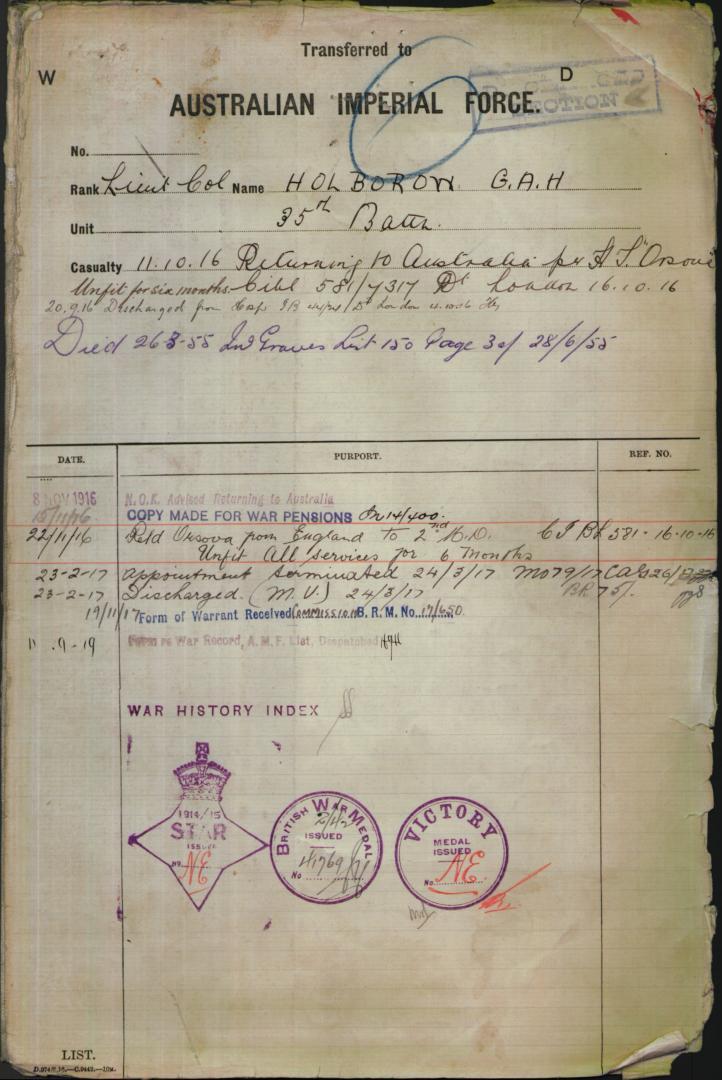 Transferred to
W D
AUSTRALIAN IMPERIAL FORCE.
SECTION
No.
Rank Lieut Col Name HOLBOROW G.A.H
Unit 35th Battn.
Casualty 11.10.16 Returning to Australia per H.T. "Orsova"
Unfit for six months Cibl 581/7317 Dt London 16.10.16
20.9.16 Discharged from Hosp Dt London
Died 26-3-55 Graves List 150 Page 3 of 28/6/55
DATE. PURPORT. REF. NO.
8 NOV 1916 N.O.K. Advised Returning to Australia
15/11/16 COPY MADE FOR WAR PENSIONS 14/400.
22/11/16 Retd Orsova from England to 2nd M.D. C I BL 581 - 16-10-16
Unfit All services for 6 months
23-2-17 appointment terminated 24/3/17 MO 79/17 CAS 26/
23-2-17 Discharged. (M.U.) 24/3/17 BR 75/.
19/11/17 Form of Warrant Received (COMMISSION) B.R.M. No. 17/650
9-19 Form re War Record, A.M.F. List, Despatched
WAR HISTORY INDEX
1914/15
STAR
ISSUED
No. NE
BRITISH WAR MEDAL
ISSUED
No 41769
VICTORY
MEDAL
ISSUED
No. NE
LIST.